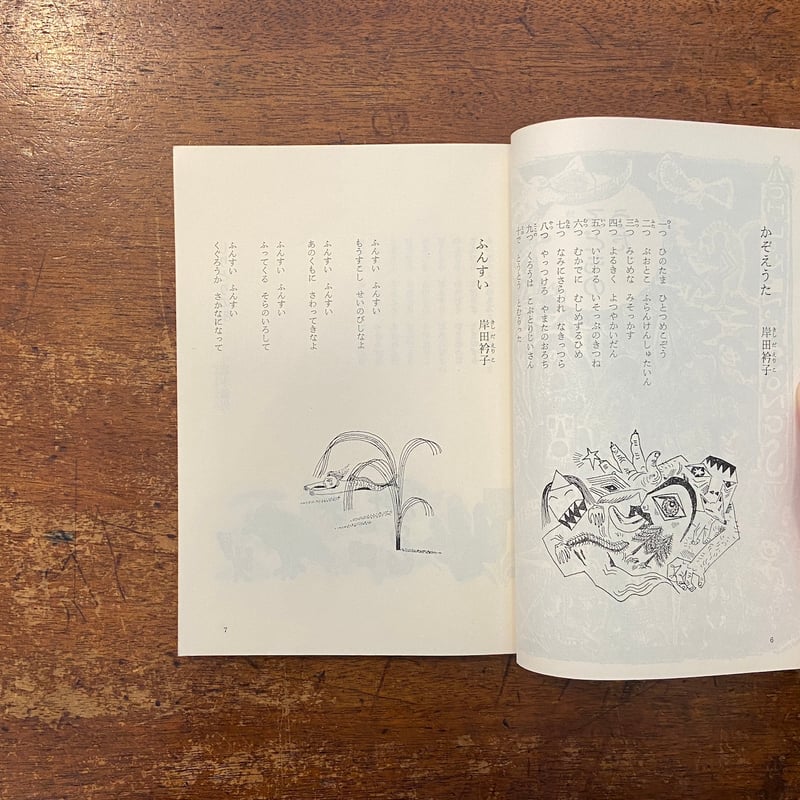 かぞえうた
岸田衿子
きしだえりこ
一つ ひのたま ひとつめこぞう
二つ ぶおとこ ふらんけんしゅたいん
三つ みじめな みそっかす
四つ よるきく よつやかいだん
五つ いじわる いそっぷのきつね
六つ むかでに むしめずるひめ
七つ なみにさらわれ なきっつら
八つ やっつけろ やまたのおろち
九つ くろうは こぶとりじいさん
十で とうとう
6
ふんすい
岸田衿子
きしだえりこ
ふんすい ふんすい
もうすこし せいのびしなよ
ふんすい ふんすい
あのくもに さわってきなよ
ふんすい ふんすい
ふってくる そらのいろして
ふんすい ふんすい
くぐろうか さかなになって
7